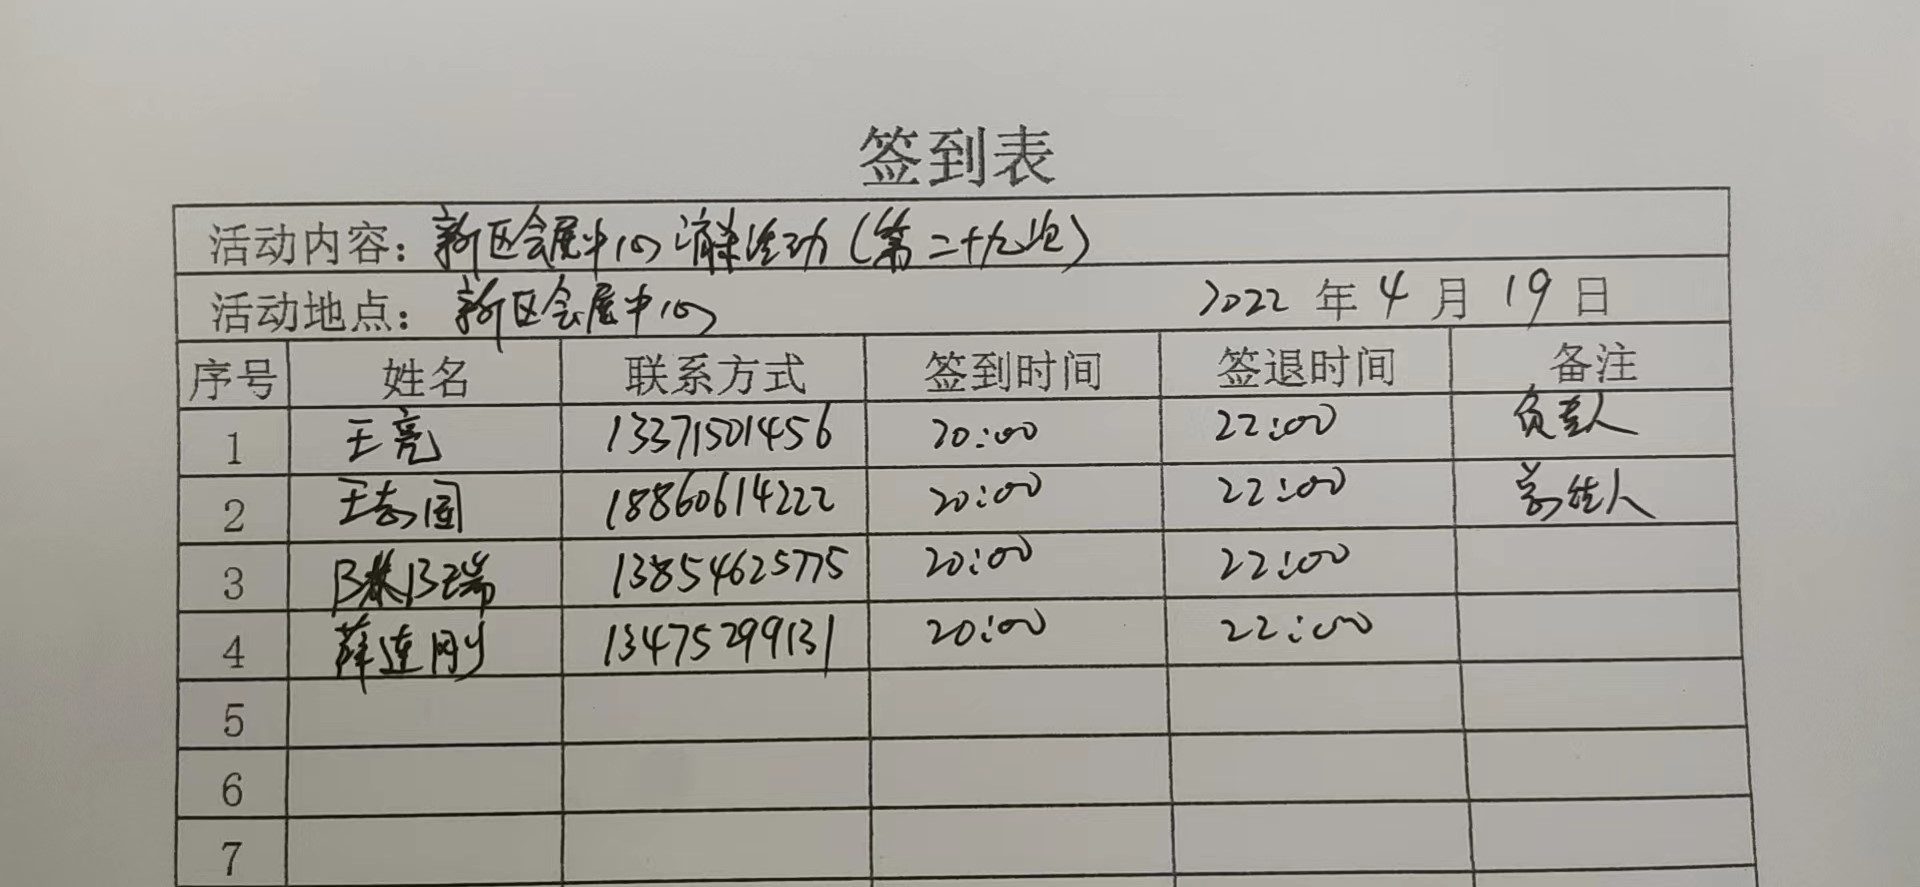 签到表
活动内容：新区会展中心消杀活动（第二十九次）
活动地点：新区会展中心 2022年4月19日
序号 姓名 联系方式 签到时间 签退时间 备注
1 王亮 13371501456 20:00 22:00 负责人
2 王志国 18860614222 20:00 22:00
3 13854625775 20:00 22:00
4 薛连刚 13475299131 20:00 22:00
5
6
7